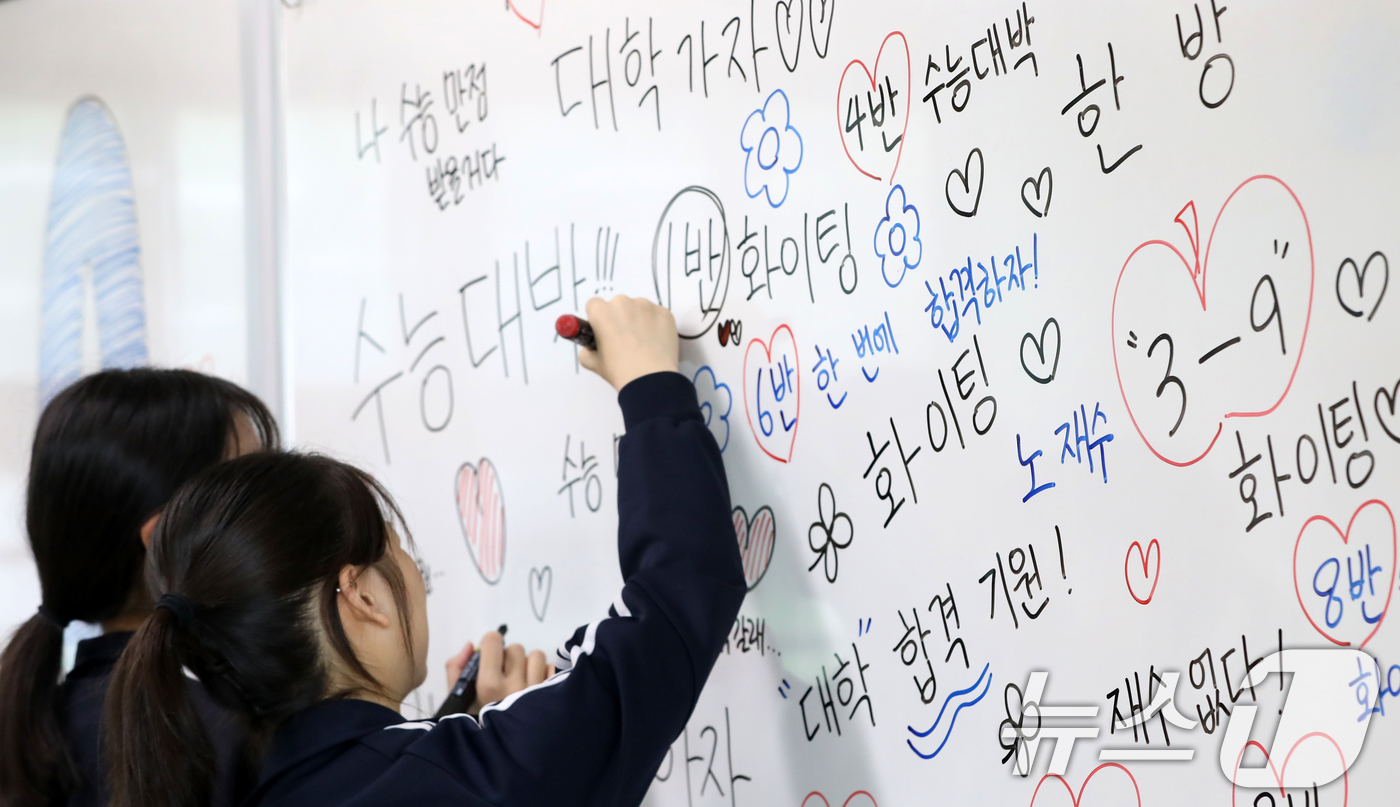 대학 가자
나 수능 만점
받을거다
4반 수능대박
한 방
수능대박!!!
1반 화이팅
합격하자!
6반 한 번에
화이팅
노 재수
"3-9"
화이팅
8반
화이
"대학" 합격 기원!
재수 없다!
갈래...
가자
뉴스1